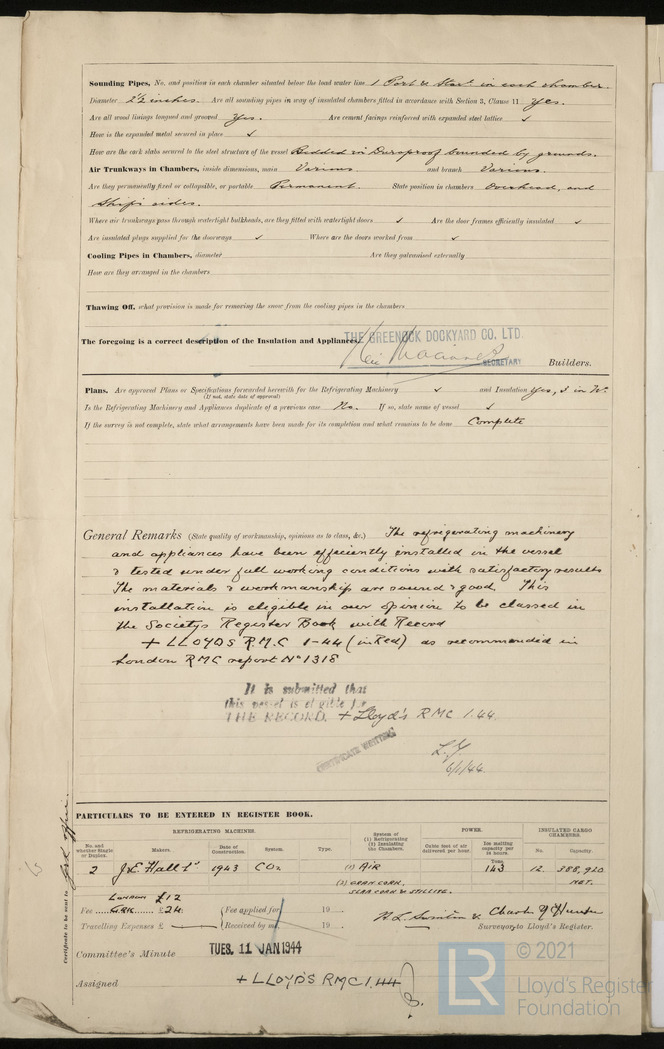 Sounding Pipes, No. and position in each chamber situated below the load water line 1 Port & Starb. in each chamber.
Diameter 2½ inches. Are all sounding pipes in way of insulated chambers fitted in accordance with Section 3, Clause 11 Yes.
Are all wood linings tongued and grooved Yes. Are cement facings reinforced with expanded steel lattice ✓
How is the expanded metal secured in place ✓
How are the cork slabs secured to the steel structure of the vessel Bedded in Duroproof bounded by grounds.
Air Trunkways in Chambers, inside dimensions, main Various and branch Various.
Are they permanently fixed or collapsible, or portable Permanent. State position in chambers Overhead, and
Ship's sides.
Where air trunkways pass through watertight bulkheads, are they fitted with watertight doors ✓ Are the door frames efficiently insulated ✓
Are insulated plugs supplied for the doorways ✓ Where are the doors worked from ✓
Cooling Pipes in Chambers, diameter Are they galvanised externally
How are they arranged in the chambers
Thawing Off, what provision is made for removing the snow from the cooling pipes in the chambers
The foregoing is a correct description of the Insulation and Appliances.
THE GREENOCK DOCKYARD CO. LTD.
SECRETARY Builders.
Plans. Are approved Plans or Specifications forwarded herewith for the Refrigerating Machinery ✓ and Insulation Yes, 3 in No.
(If not, state date of approval)
Is the Refrigerating Machinery and Appliances duplicate of a previous case No. If so, state name of vessel ✓
If the survey is not complete, state what arrangements have been made for its completion and what remains to be done Complete
General Remarks (State quality of workmanship, opinions as to class, &c.) The refrigerating machinery
and appliances have been efficiently installed in the vessel
& tested under full working conditions with satisfactory results
The materials & workmanship are sound & good. This
installation is eligible in our opinion to be classed in
the Societys Register Book with Record
+ LLOYDS R.M.C 1-44 (in Red) as recommended in
London RMC report No 1318
It is submitted that
this vessel is eligible for
THE RECORD. + Lloyd's RMC 1.44.
CERTIFICATE WRITTEN
6/1/44
PARTICULARS TO BE ENTERED IN REGISTER BOOK.
REFRIGERATING MACHINES.
System of (1) Refrigerating (2) Insulating the Chambers.
POWER.
INSULATED CARGO CHAMBERS.
No. and whether Single or Duplex. Makers. Date of Construction. System. Type. Cubic feet of air delivered per hour. Ice melting capacity per 24 hours. No. Capacity.
Tons.
2 J&E Hall Ld 1943 CO2 (1) AIR 143 12. 388,920
NET.
(2) GRAN. CORK,
SLAB CORK & STILLITE.
London £12
Fee ...... GRK ... £24 (Fee applied for 19
Travelling Expenses £ (Received by me 19
Charles
Surveyor to Lloyd's Register.
Certificate to be sent to
Committee's Minute TUES. 11 JAN 1944
Assigned + LLOYD'S RMC 1.44
LR
© 2021
Lloyd's Register
Foundation